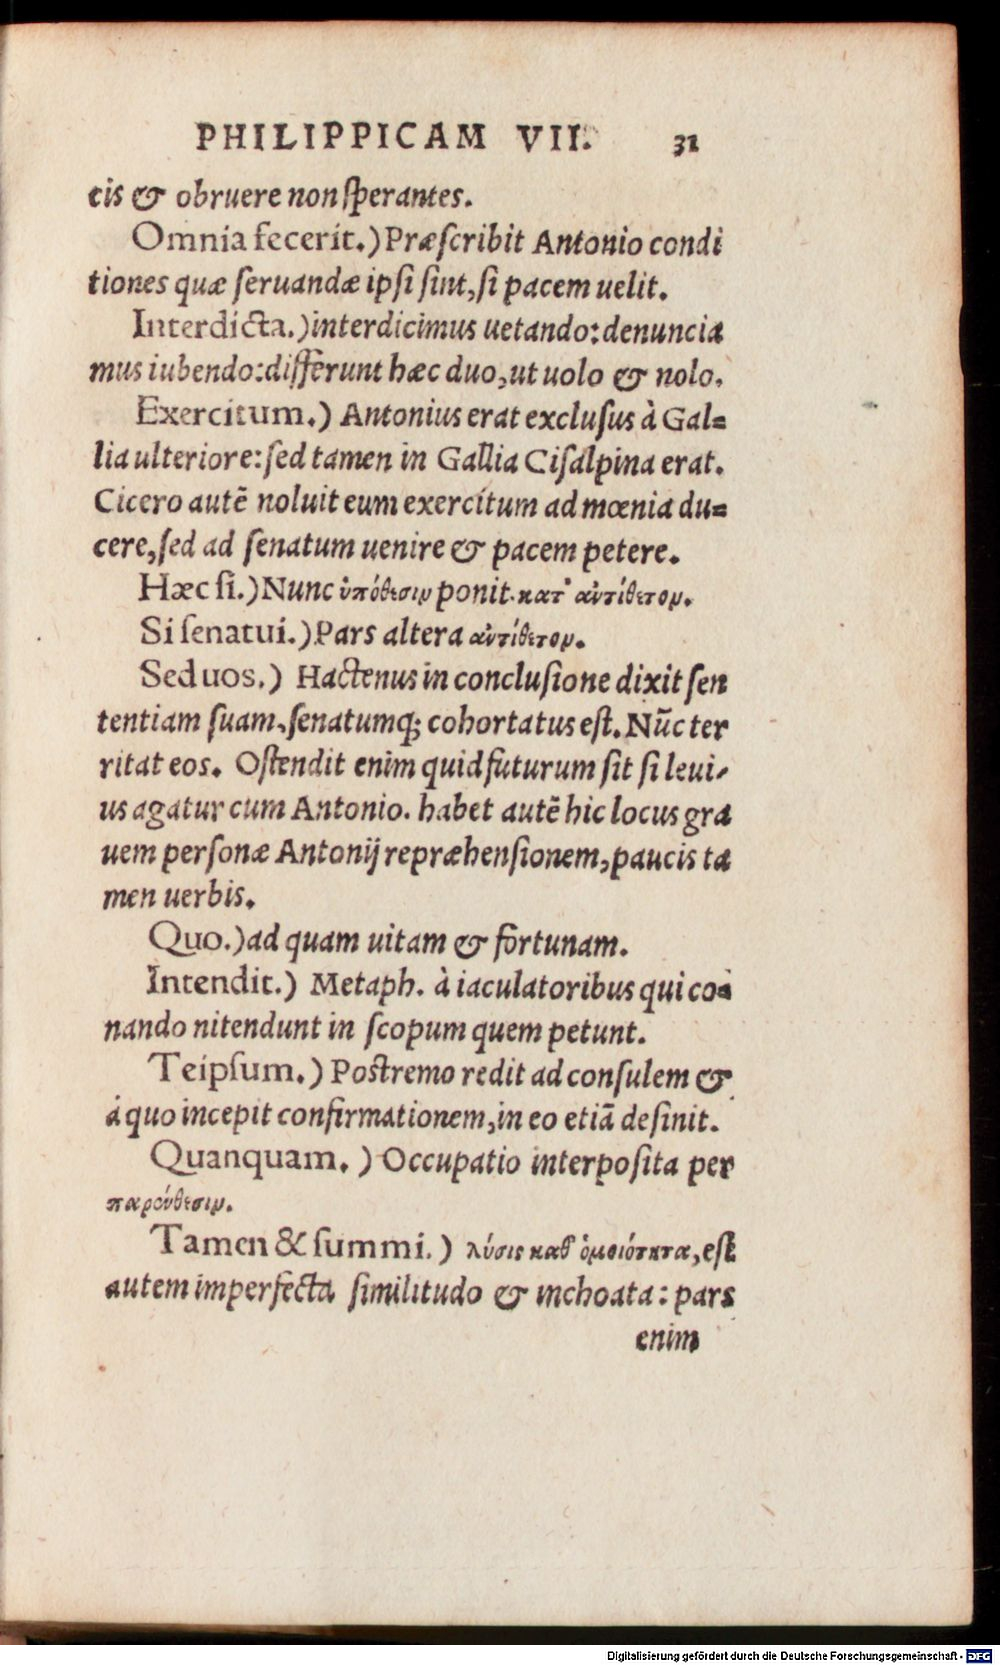 PHILIPPICAM VII. 31
cis & obruere non sperantes.
Omnia fecerit.) Præscribit Antonio condi
tiones quæ seruandæ ipsi sint, si pacem uelit.
Interdicta.) interdicimus uetando: denuncia
mus iubendo: differunt hæc duo, ut uolo & nolo.
Exercitum.) Antonius erat exclusus à Gal=
lia ulteriore: sed tamen in Gallia Cisalpina erat.
Cicero autē noluit eum exercitum ad mœnia du=
cere, sed ad senatum uenire & pacem petere.
Hæc si.) Nunc ὑπόθεσιμ ponit. κατ᾽ ἀντίθετομ.
Si senatui.) Pars altera ἀντίθετομ.
Sed uos.) Hactenus in conclusione dixit sen
tentiam suam, senatumq; cohortatus est. Nūc ter
ritat eos. Ostendit enim quid futurum sit si leui-
us agatur cum Antonio. habet autē hic locus gra
uem personæ Antonij repræhensionem, paucis ta
men uerbis.
Quo.) ad quam uitam & fortunam.
Intendit.) Metaph. à iaculatoribus qui co=
nando nitendunt in scopum quem petunt.
Teipsum.) Postremo redit ad consulem &
à quo incepit confirmationem, in eo etiā desinit.
Quanquam.) Occupatio interposita per
παρένθεσιμ.
Tamen & summi.) λύσις καθ᾽ ὁμοιότητα, est
autem imperfecta similitudo & inchoata: pars
enim
Digitalisierung gefördert durch die Deutsche Forschungsgemeinschaft - DFG